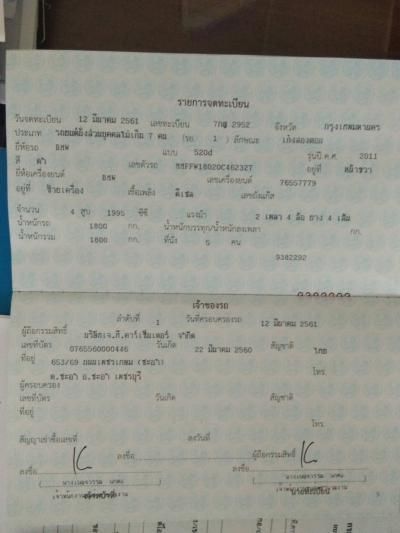 รายการจดทะเบียน
วันจดทะเบียน 12 มีนาคม 2561 เลขทะเบียน 7กฐ 2952 จังหวัด กรุงเทพมหานคร
ประเภท รถยนต์นั่งส่วนบุคคลไม่เกิน 7 คน (รย. 1 ) ลักษณะ เก๋งสองตอน
ยี่ห้อรถ BMW แบบ 520d รุ่นปี ค.ศ. 2011
สี ดำ เลขตัวรถ อยู่ที่ หน้าขวา
ยี่ห้อเครื่องยนต์ BMW เลขเครื่องยนต์ 76557779
อยู่ที่ ซ้ายเครื่อง เชื้อเพลิง ดีเซล เลขถังแก๊ส
จำนวน 4 สูบ 1995 ซีซี แรงม้า 2 เพลา 4 ล้อ ยาง 4 เส้น
น้ำหนักรถ 1800 กก. น้ำหนักบรรทุก/น้ำหนักลงเพลา กก.
น้ำหนักรวม 1800 กก. ที่นั่ง 5 คน
9382292
เจ้าของรถ
ลำดับที่ 1 วันที่ครอบครองรถ 12 มีนาคม 2561
ผู้ถือกรรมสิทธิ์ บริษัทเจ.ที.คาร์เซ็นเตอร์ จำกัด
เลขที่บัตร 0765560000446 วันเกิด 22 มีนาคม 2560 สัญชาติ ไทย
ที่อยู่ 653/69 ถนนเพชรเกษม (ชะอำ) โทร.
ต.ชะอำ อ.ชะอำ เพชรบุรี
ผู้ครอบครอง
เลขที่บัตร วันเกิด สัญชาติ
ที่อยู่
โทร.
สัญญาเช่าซื้อเลขที่ ลงวันที่
ลงชื่อ ผู้ถือกรรมสิทธิ์
ลงชื่อ ลงชื่อ
นายทะเบียน
5